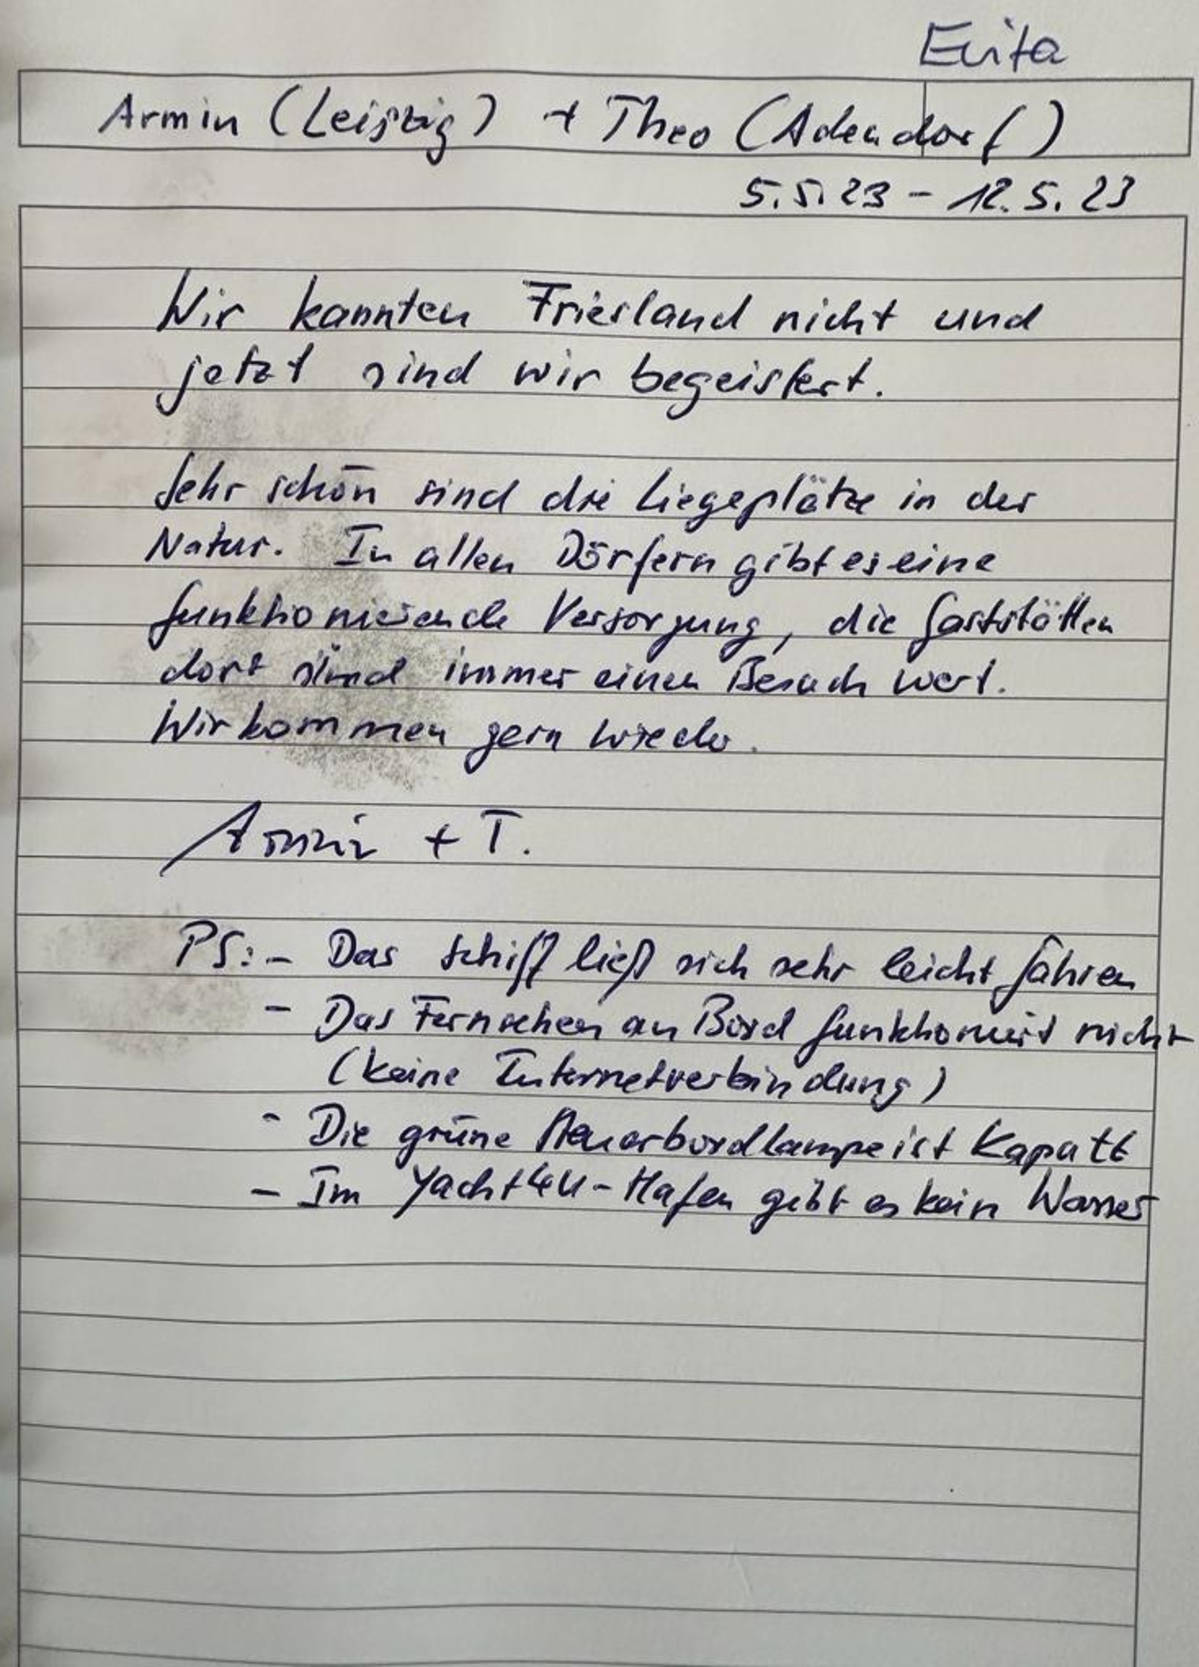 Evita
Armin (Leipzig) + Theo (Adendorf)
5.5.23 - 12.5.23
Wir kannten Friesland nicht und
jetzt sind wir begeistert.
Sehr schön sind die Liegeplätze in der
Natur. In allen Dörfern gibt es eine
funktionierende Versorgung, die Gaststätten
dort sind immer einen Besuch wert.
Wir kommen gern wieder.
Armin + T.
PS: - Das Schiff ließ sich sehr leicht fahren
- Das Fernsehen an Bord funktioniert nicht
(keine Internetverbindung)
- Die grüne Steuerbordlampe ist Kaputt
- Im Yacht4U-Hafen gibt es kein Wasser